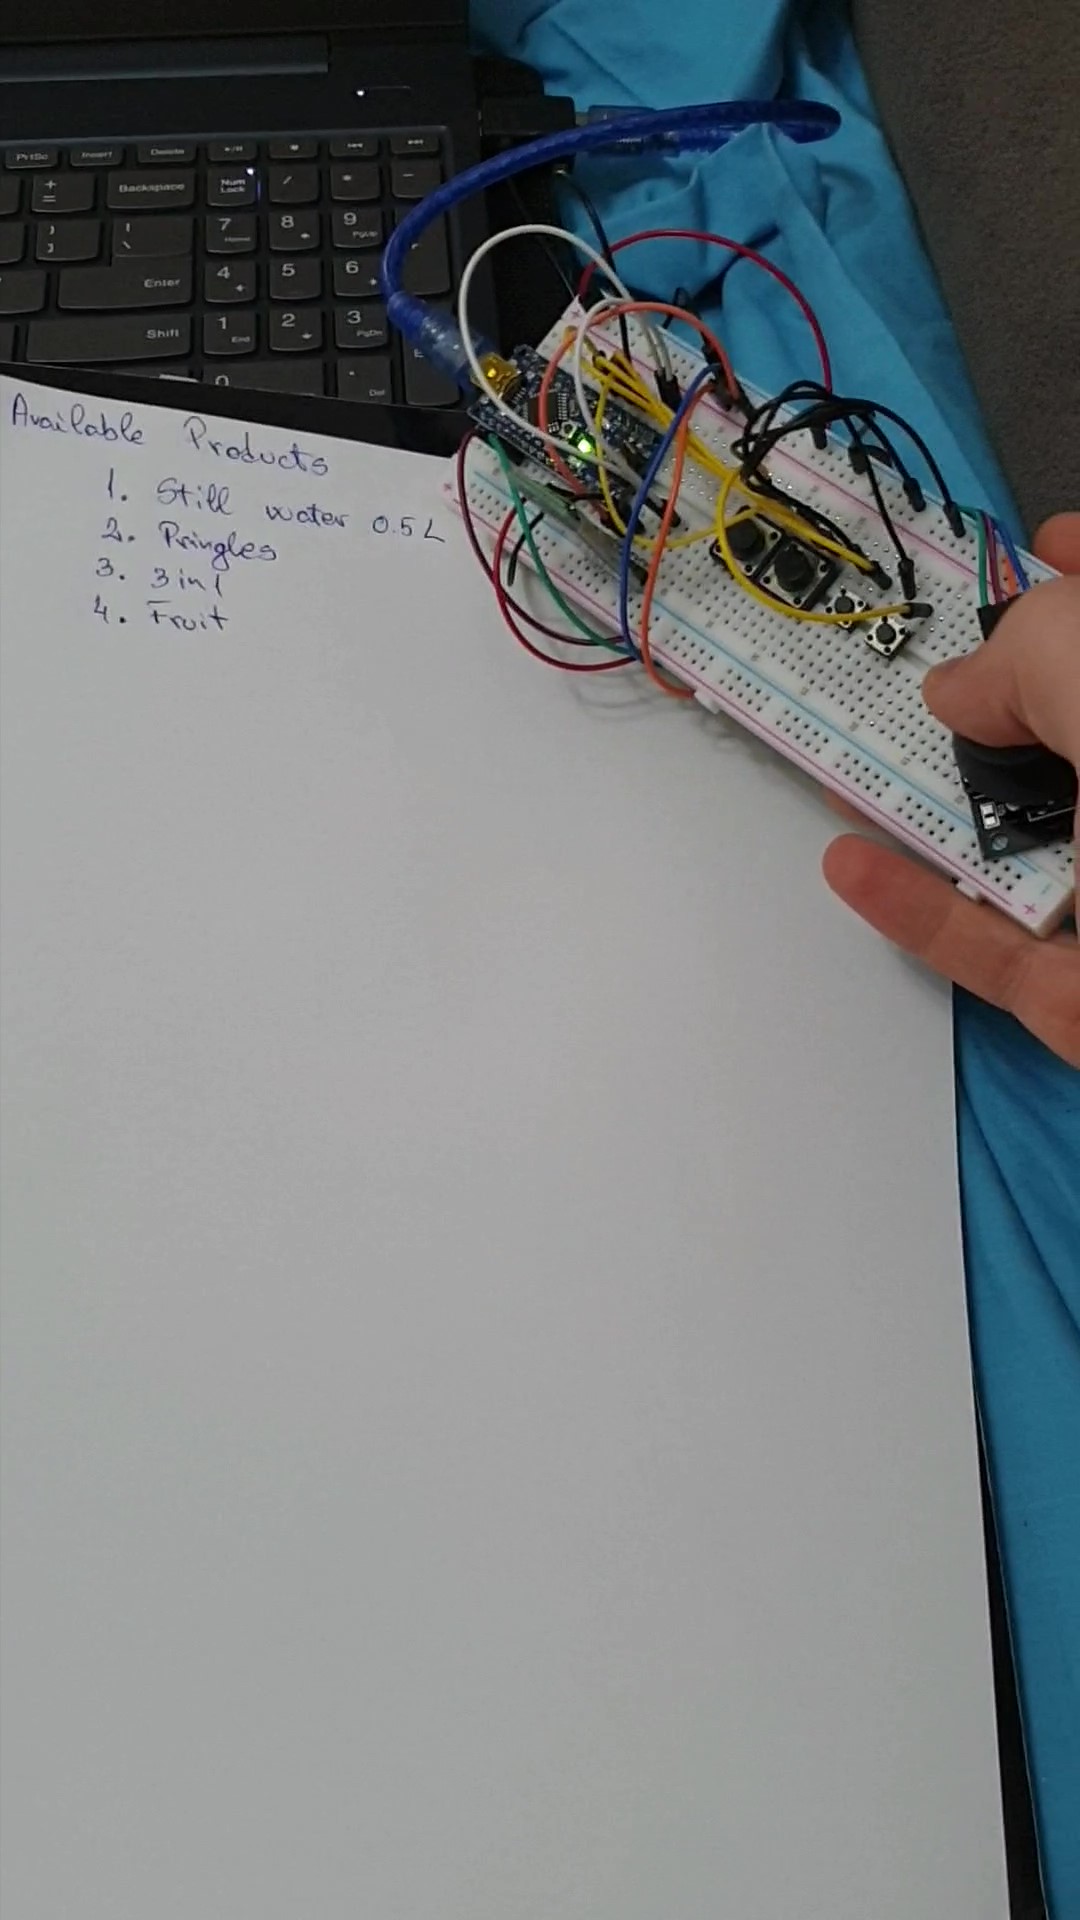 PrtSc Insert Delete
+ = Backspace Num Lock / * -
} ] | \ 7 Home 8 9 PgUp
Enter 4 5 6
Shift 1 End 2 3 PgDn
0 . Del
Available Products
1. Still water 0.5L
2. Pringles
3. 3in1
4. Fruit